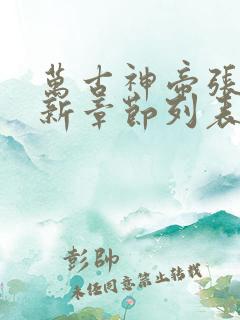 萬古神帝張
新章節列表
彭帥
未经同意禁止转载